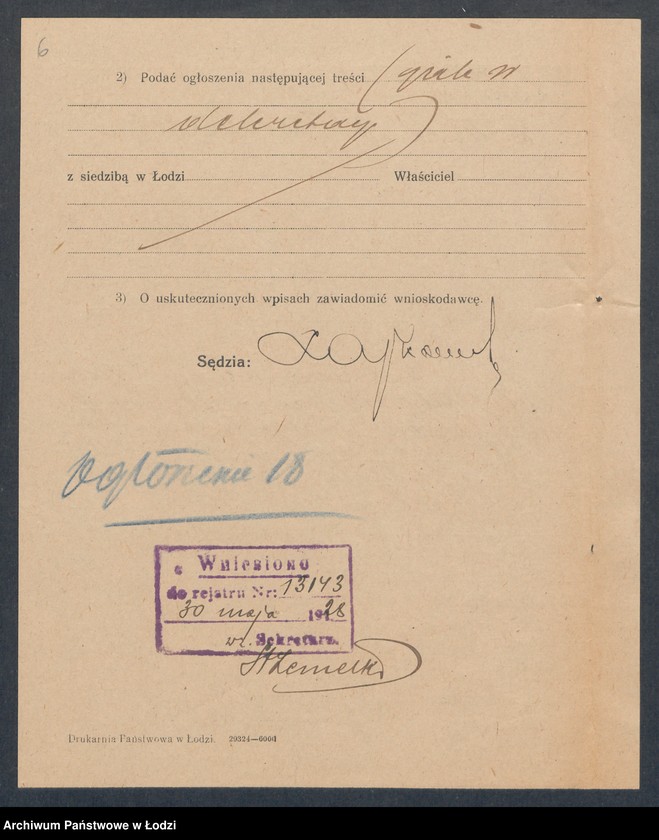 6
2) Podać ogłoszenia następującej treści
z siedzibą w Łodzi Właściciel
3) O uskutecznionych wpisach zawiadomić wnioskodawcę.
Sędzia:
Ogłoszenie 18
Wniesiono
do rejstru Nr: 13143
30 maja 1928
wz. Sekretarz.
Drukarnia Państwowa w Łodzi. 29324—6000
Archiwum Państwowe w Łodzi